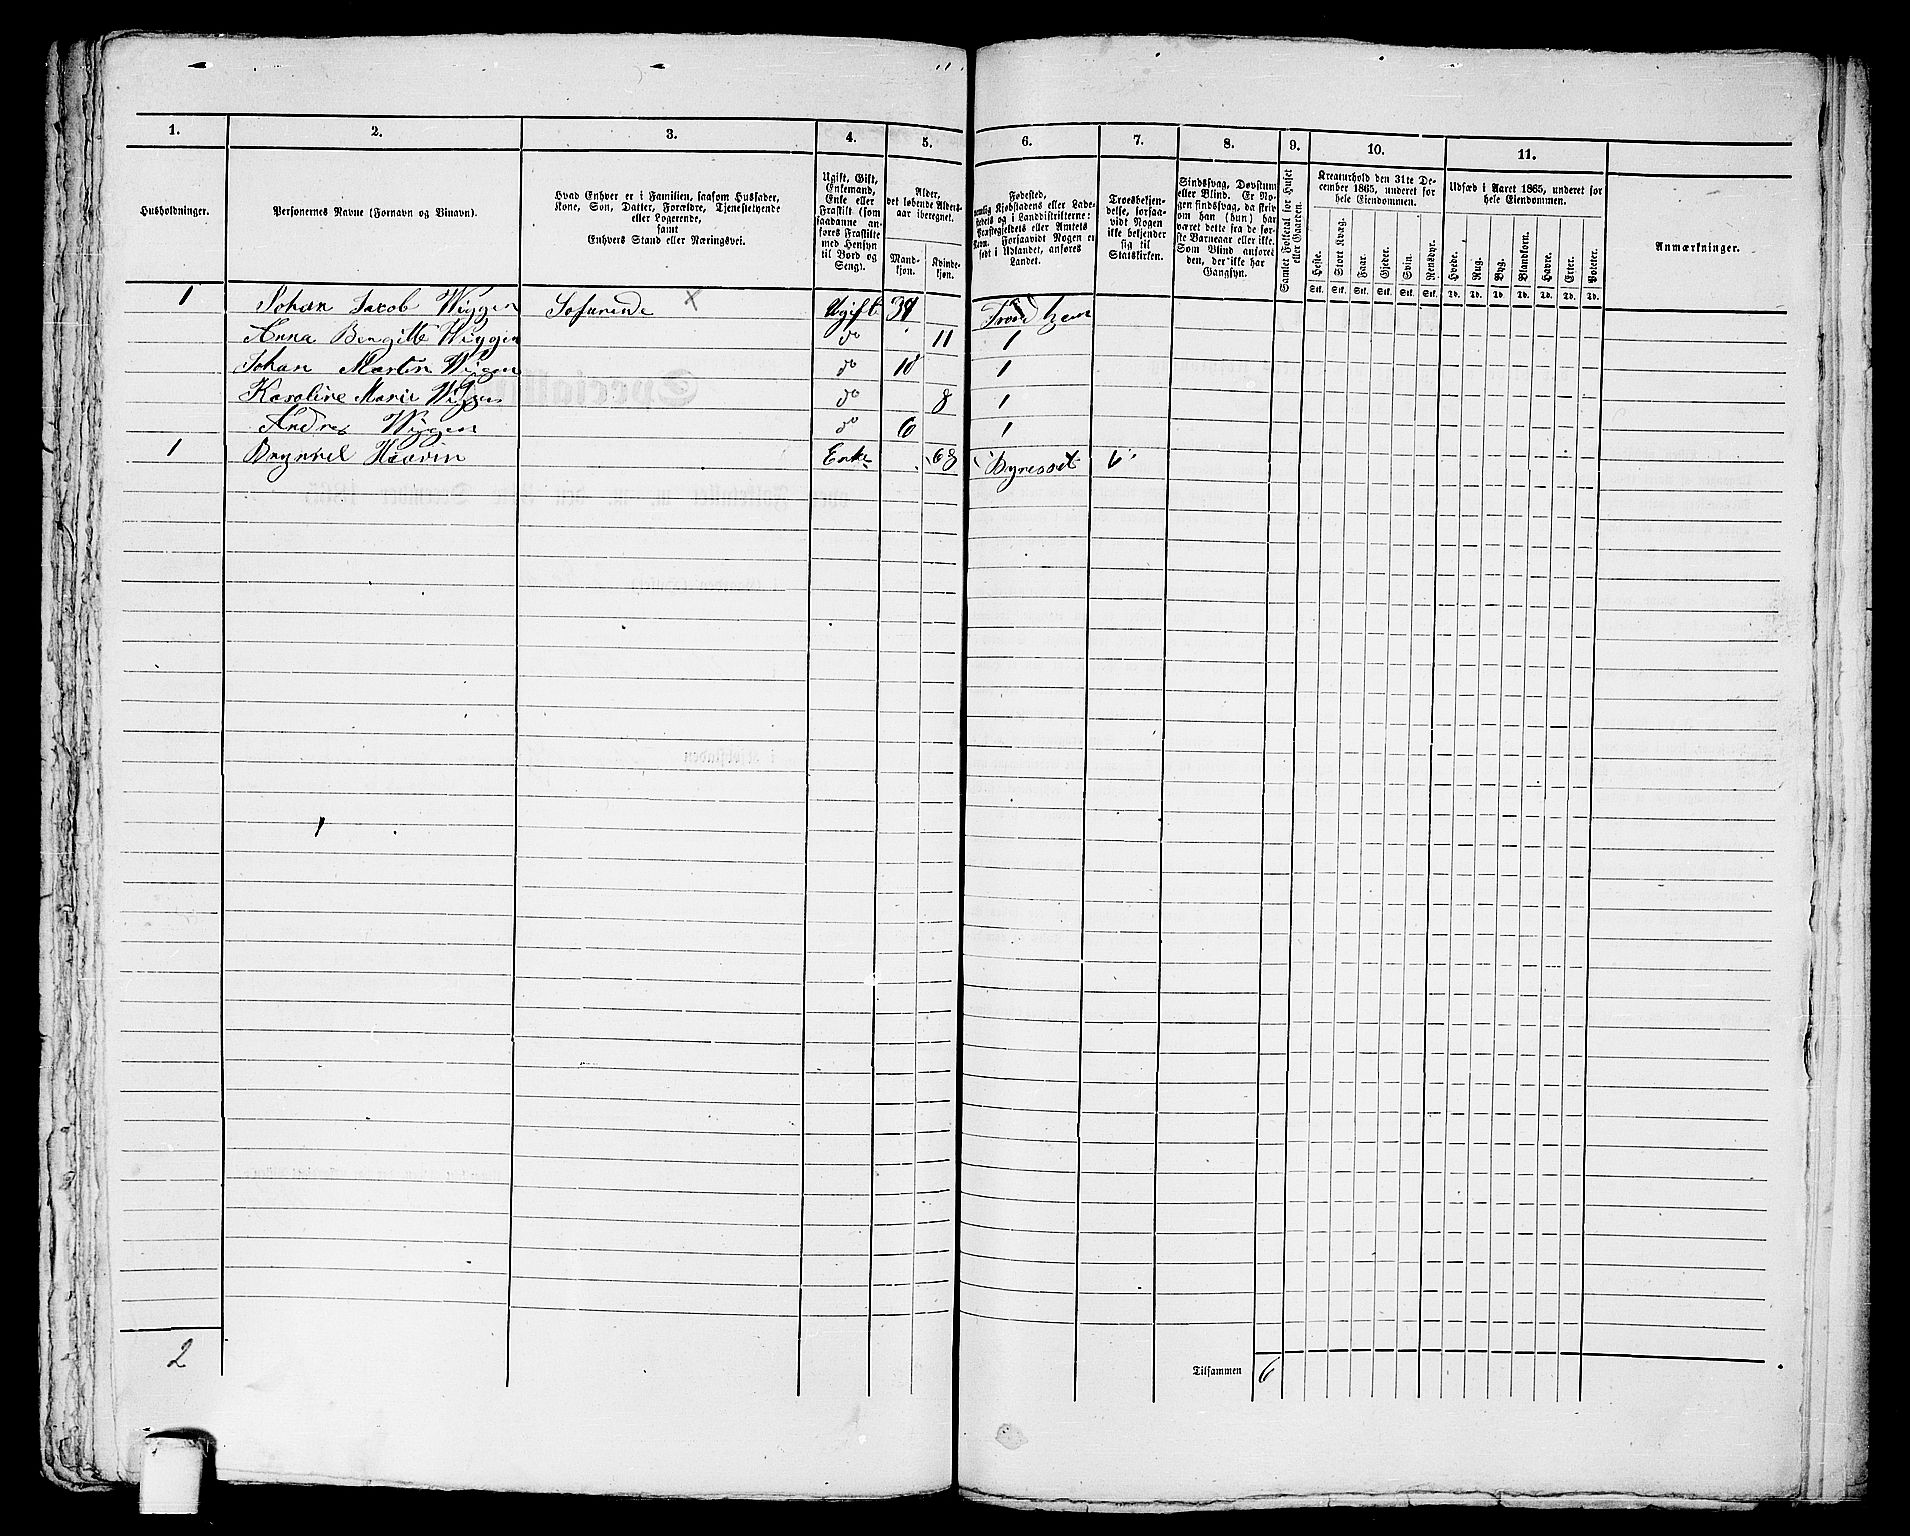 1. 2. 3. 4. 5. 6. 7. 8. 9. 10. 11.
Husholdninger.
Personernes Navne (Fornavn og Tilnavn).
Hvad Enhver er i Familien, saasom Husfader,
Kone, Søn, Datter, Forældre, Tjenestetyende
eller Logerende,
samt
Enhvers Stand eller Næringsvei.
Ugift, Gift,
Enkemand,
Enke eller
Fraskilt (som
saadanne an-
føres Fraskilte
med Hensyn
til Bord og
Seng).
Alder,
det løbende Alders-
aar iberegnet.
Mand-
kjøn.
Kvinde-
kjøn.
Fødested,
nemlig Kjøbstadens eller Lade-
stedets og i Landdistrikterne:
Præstegjeldets eller Amtets
Navn. Forsaavidt Nogen er
født i Udlandet, anføres
Landet.
Troesbekjen-
delse, forsaa-
vidt Nogen
ikke bekjender
sig til
Statskirken.
Sindssvag, Døvstum
eller Blind. Er No-
gen sindssvag, da skriv
om han (hun) har
været dette fra de før-
ste Barneaar eller ikke.
Som Blind anføres
den, der ikke har
Gangsyn.
Samlet Folketal for Huset
eller Gaarden.
Kreaturhold den 31te De-
cember 1865, underet for
hele Eiendommen.
Heste. Stort Kvæg. Faar. Gjeder. Svin. Rensdyr.
Stk. Stk. Stk. Stk. Stk. Stk.
Udsæd i Aaret 1865, underet for
hele Eiendommen.
Hvede. Rug. Byg. Blandkorn. Havre. Erter. Poteter.
Td. Td. Td. Td. Td. Td. Td.
Anmærkninger.
1 Johan Jacob Wiggen X Ugift 34 Trondhjem
Anna Bergitte Wiggen do 11 1
Johan Martin Wigen do 10 1
Karoline Marie Wiggen do 8 1
Andres Wiggen do 6 1
1 Haavin Enke 68
2 Tilsammen 6